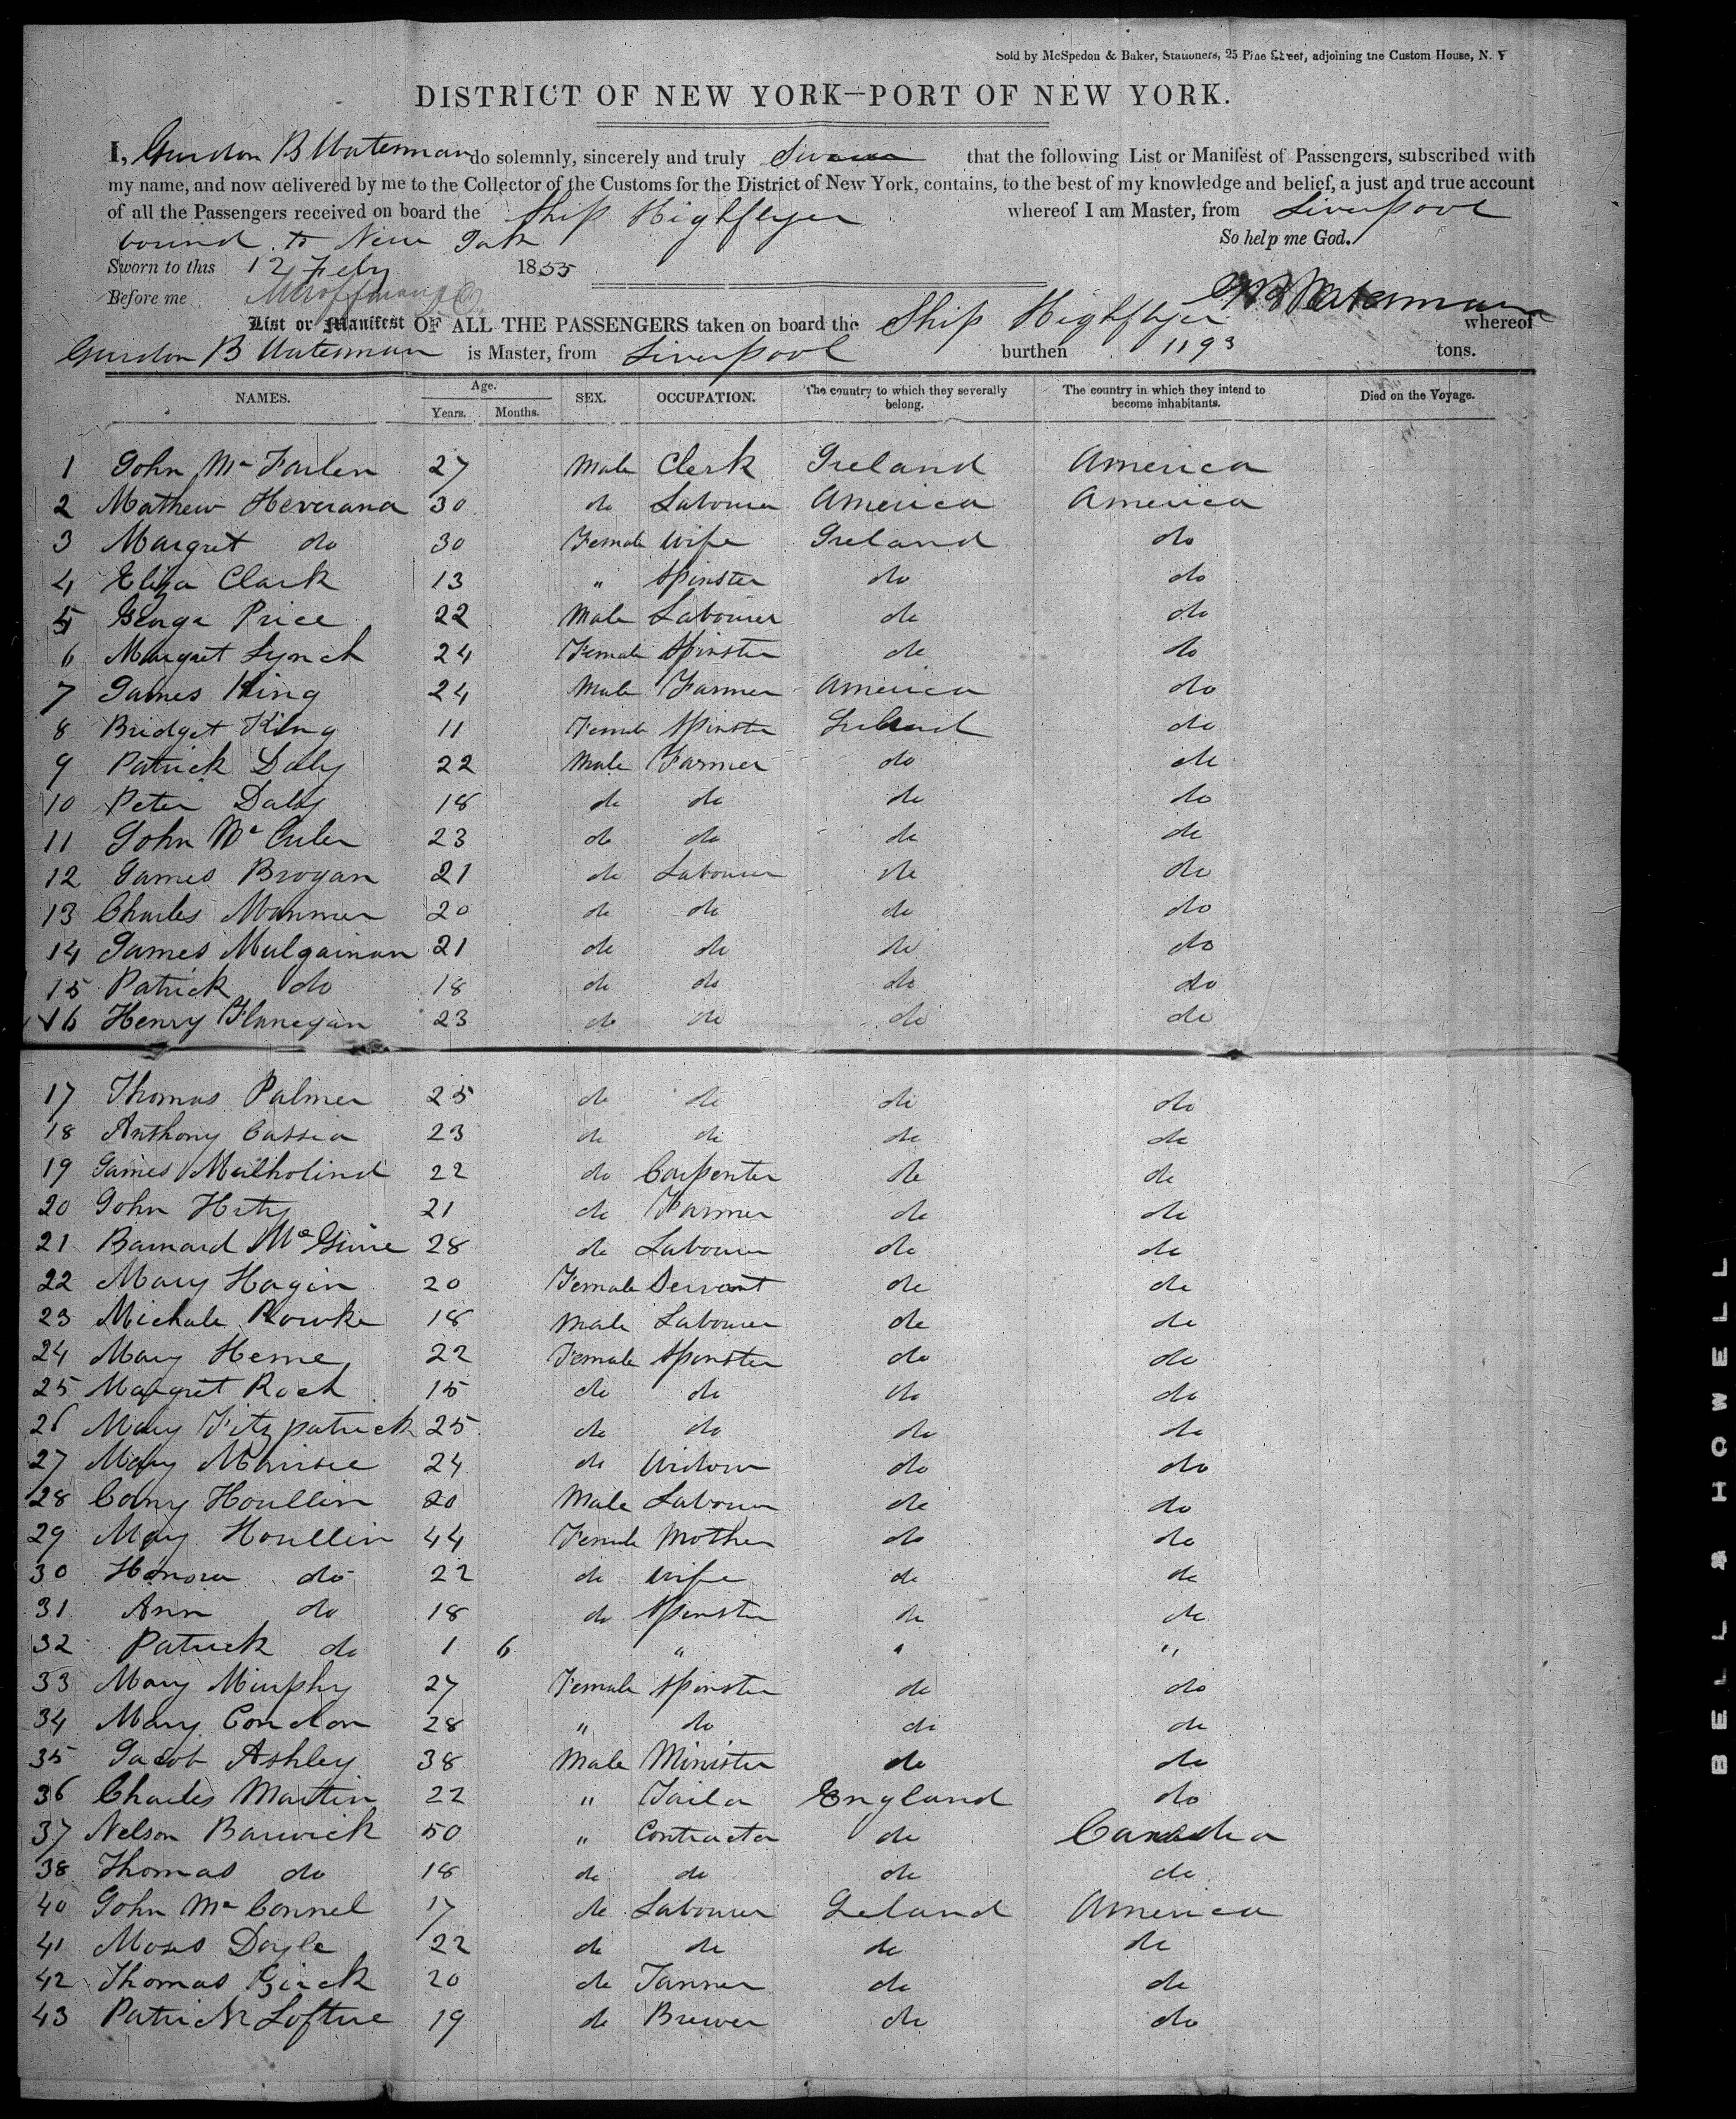 Sold by McSpedon & Baker, Stationers, 25 Pine Street, adjoining the Custom House, N. Y
DISTRICT OF NEW YORK—PORT OF NEW YORK.
I, Gurdon B Waterman do solemnly, sincerely and truly Swear that the following List or Manifest of Passengers, subscribed with
my name, and now delivered by me to the Collector of the Customs for the District of New York, contains, to the best of my knowledge and belief, a just and true account
of all the Passengers received on board the Ship Highflyer whereof I am Master, from Liverpool
bound to New York So help me God.
Sworn to this 12 Feby 1855
Before me GB Waterman
List or Manifest OF ALL THE PASSENGERS taken on board the Ship Highflyer whereof
Gurdon B Waterman is Master, from Liverpool burthen 1193 tons.
NAMES. Age. Years. Months. SEX. OCCUPATION. The country to which they severally belong. The country in which they intend to become inhabitants. Died on the Voyage.
1 John Mc Farlen 27 Male Clerk Ireland America
2 Mathew Heverana 30 do Labourer America America
3 Margret do 30 Female Wife Ireland do
4 Eliza Clark 13 " Spinster do do
5 George Price 22 Male Labourer do do
6 Margret Lynch 24 Female Spinster do do
7 James King 24 Male Farmer America do
8 Bridget King 11 Female Spinster Ireland do
9 Patrick Daly 22 Male Farmer do do
10 Peter Daly 18 do do do do
11 John Mc Culer 23 do do do do
12 James Brogan 21 do Labourer do do
13 Charles Manmer 20 do do do do
14 James Mulgainan 21 do do do do
15 Patrick do 18 do do do do
16 Henry Flanegan 23 do do do do
17 Thomas Palmer 25 do do do do
18 Anthony Cassia 23 do do do do
19 James Mulholind 22 do Carpenter do do
20 John Haty 21 do Farmer do do
21 Barnard Mc Guire 28 do Labourer do do
22 Mary Hagin 20 Female Servant do do
23 Michale Rourke 18 Male Labourer do do
24 Mary Herne 22 Female Spinster do do
25 Margret Roch 15 do do do do
26 Mary Fitzpatrick 25 do do do do
27 Mary 24 do Widow do do
28 Houllin 20 Male Labourer do do
29 Mary Houllin 44 Female Mother do do
30 Honora do 22 do Wife do do
31 Ann do 18 do Spinster do do
32 Patrick do 1 6 " " "
33 Mary Murphy 27 Female Spinster do do
34 Mary Condon 28 " do do do
35 Jacob Ashley 38 Male Minister do do
36 Charles Martin 22 " Tailor England do
37 Nelson Barwick 50 " Contractor do Canada
38 Thomas do 18 do do do do
40 John Mc Connel 17 do Labourer Ireland America
41 Moses Doyle 22 do do do do
42 Thomas 20 do Tanner do do
43 Patrick Loftue 19 do Brewer do do
BELL & HOWELL